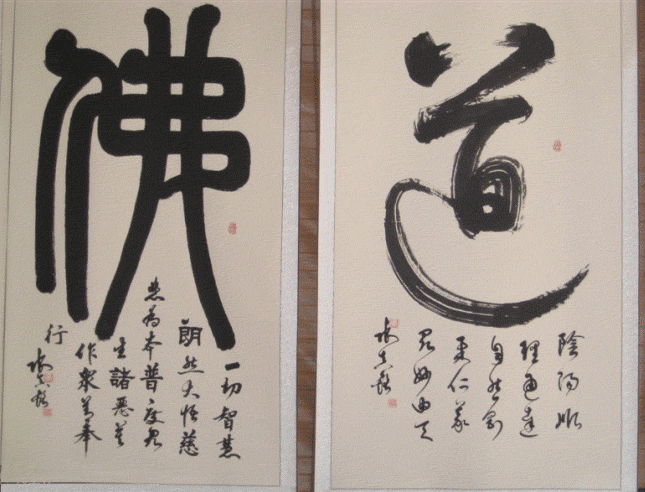 佛
一切智慧
朗然大悟慈
悲為本普度眾
生諸惡莫
作衆善奉
行
道
陰陽順
理通達
自然剛
柔仁義
眾妙由